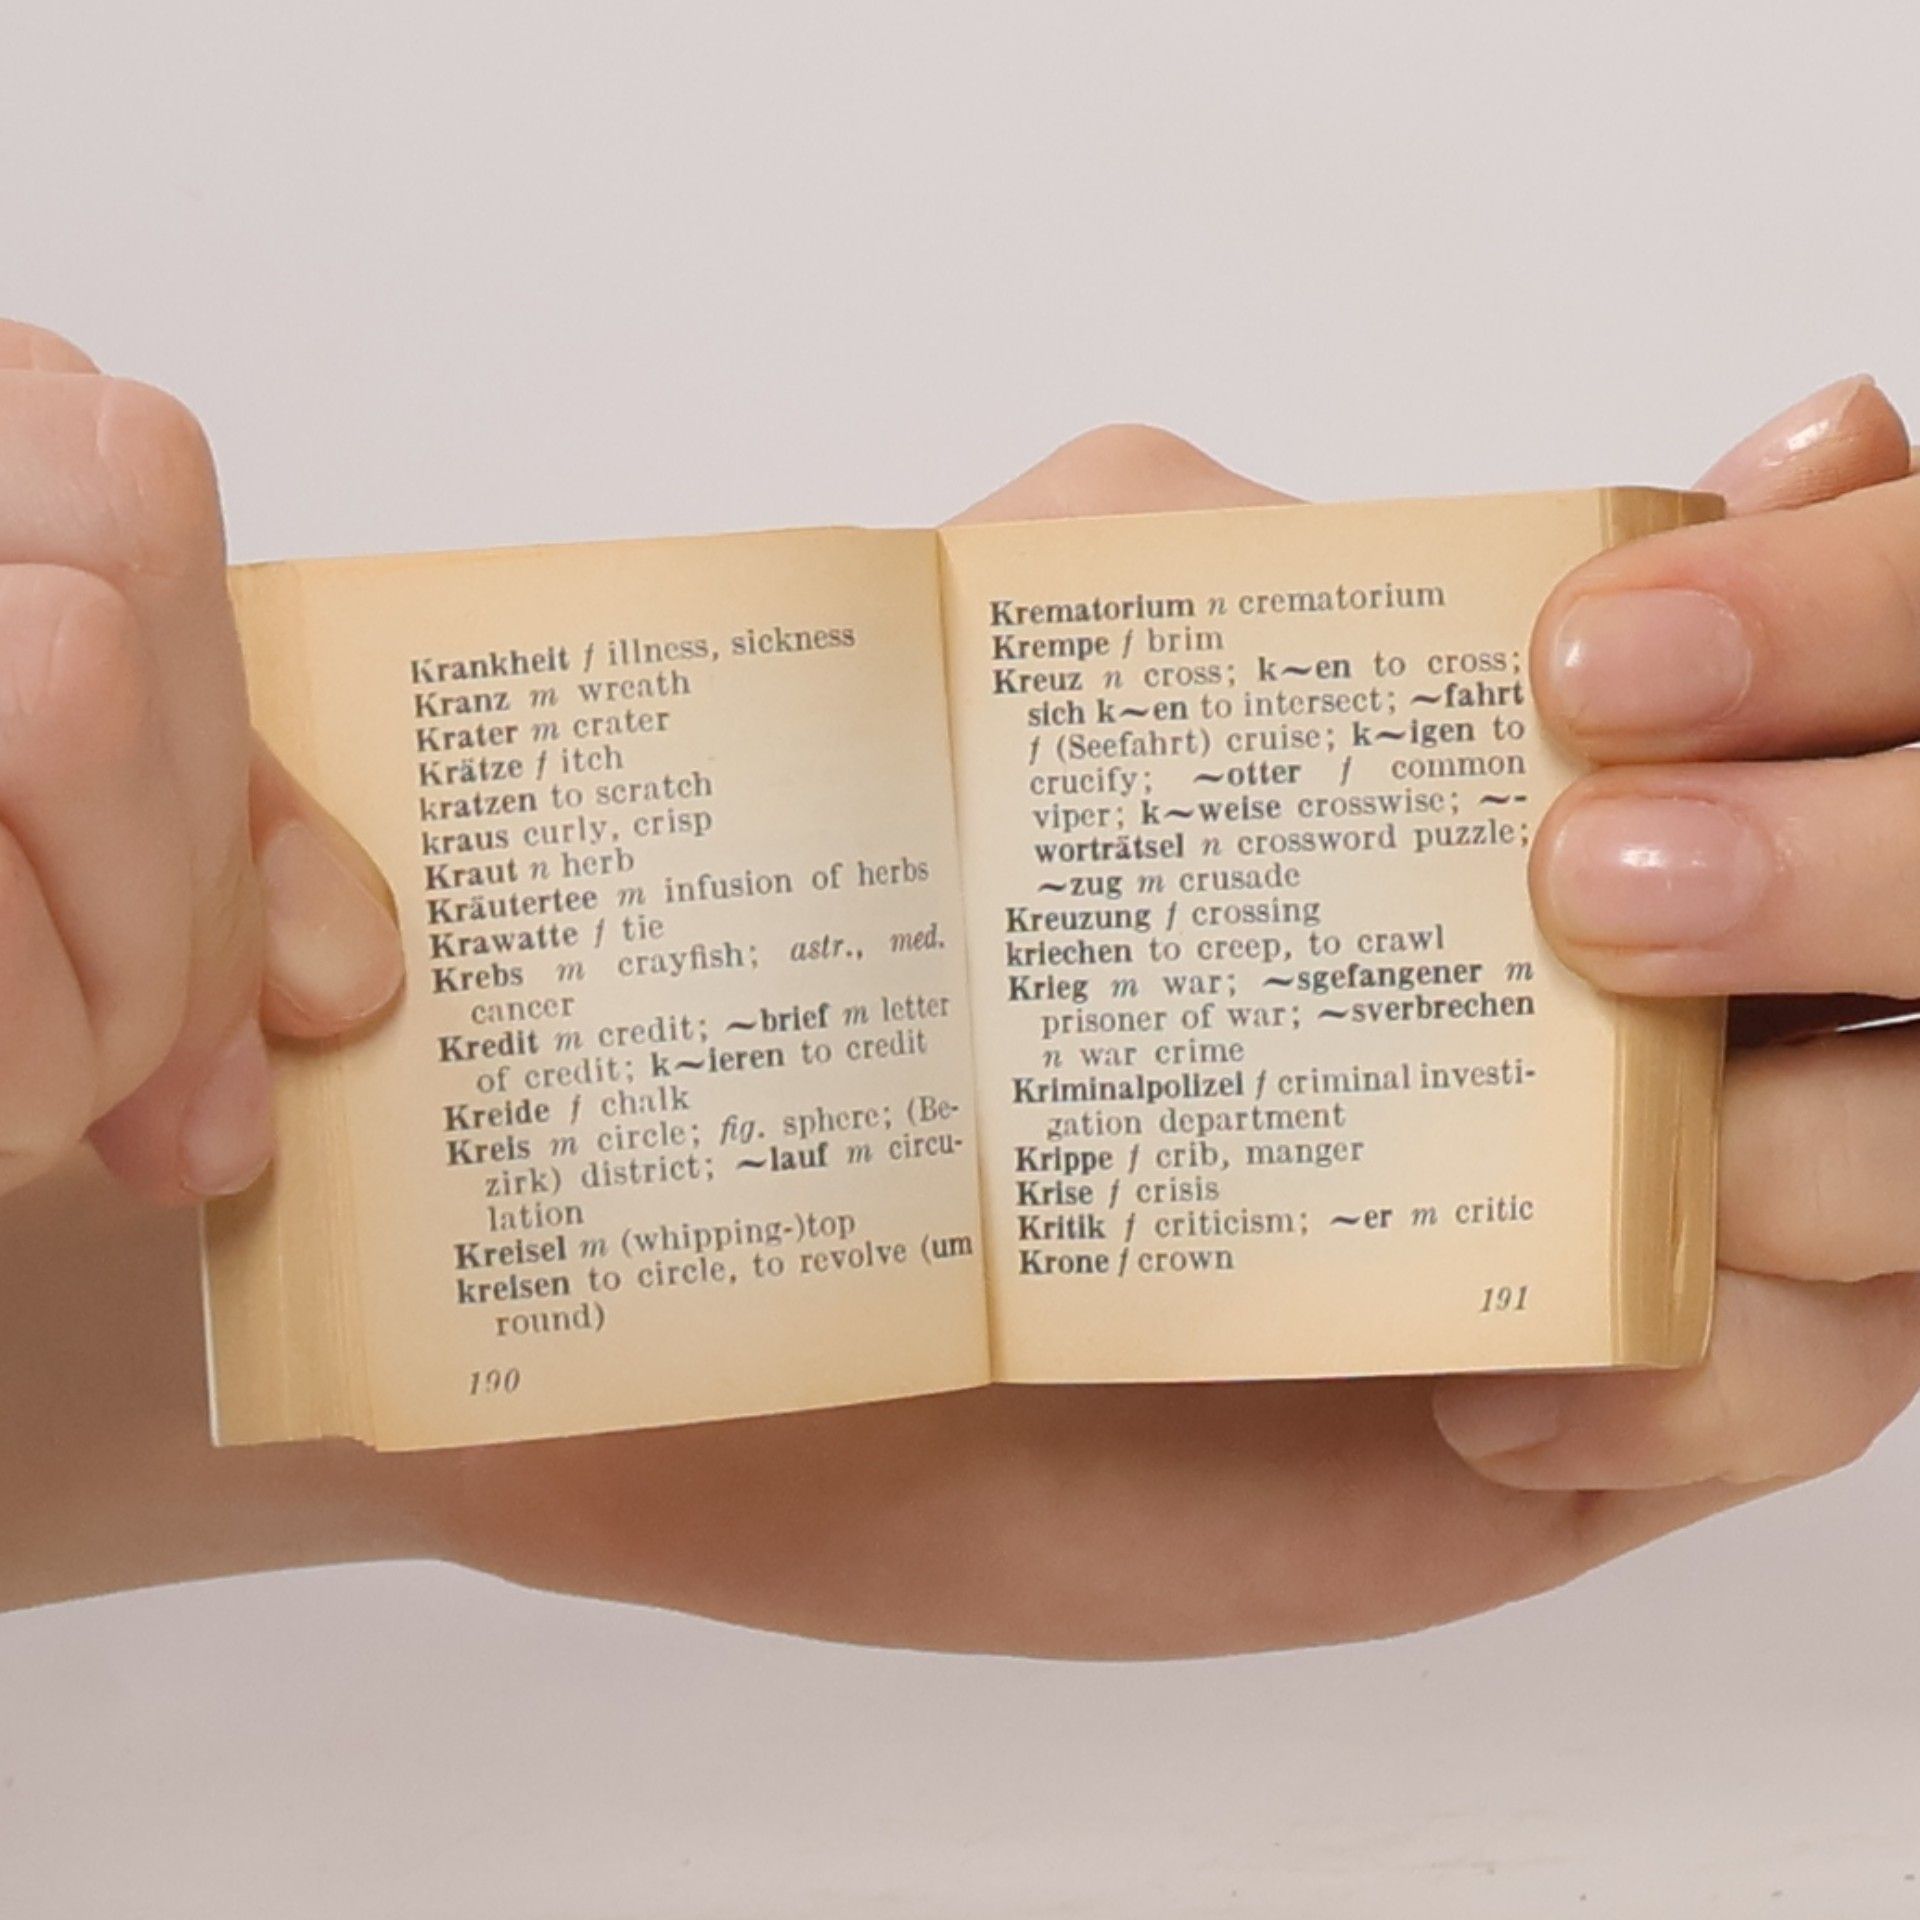 Krankheit f illness, sickness
Kranz m wreath
Krater m crater
Krätze f itch
kratzen to scratch
kraus curly, crisp
Kraut n herb
Kräutertee m infusion of herbs
Krawatte f tie
Krebs m crayfish; astr., med.
cancer
Kredit m credit; ~brief m letter
of credit; k~ieren to credit
Kreide f chalk
Kreis m circle; fig. sphere; (Be-
zirk) district; ~lauf m circu-
lation
Kreisel m (whipping-)top
kreisen to circle, to revolve (um
round)
190
Krematorium n crematorium
Krempe f brim
Kreuz n cross; k~en to cross;
sich k~en to intersect; ~fahrt
f (Seefahrt) cruise; k~igen to
crucify; ~otter f common
viper; k~weise crosswise; ~-
worträtsel n crossword puzzle;
~zug m crusade
Kreuzung f crossing
kriechen to creep, to crawl
Krieg m war; ~sgefangener m
prisoner of war; ~sverbrechen
n war crime
Kriminalpolizei f criminal investi-
gation department
Krippe f crib, manger
Krise f crisis
Kritik f criticism; ~er m critic
Krone f crown
191